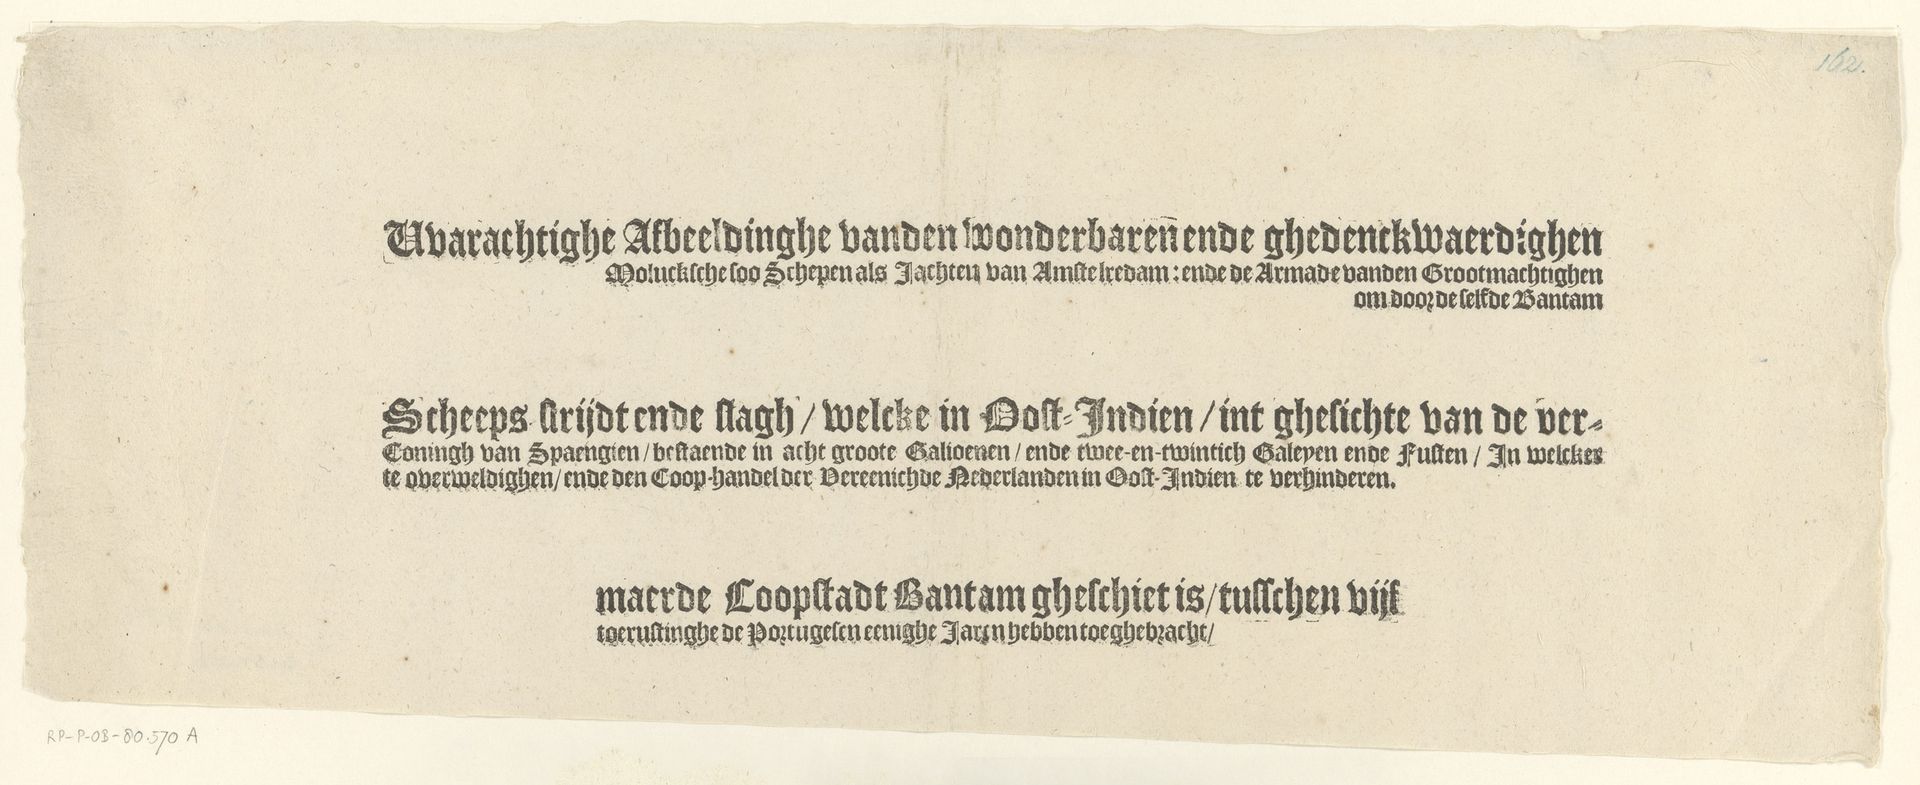 162.
Uvarachtighe Afbeeldinghe vanden wonderbaren̄ ende ghedenckwaerdighen
Moluckſche ſoo Schepen als Jachten van Amſtelredam: ende de Armade vanden Grootmachtighen
om door de ſelfde Bantam
Scheeps ſtrijdt ende ſlagh / welcke in Ooſt-Indien / int gheſichte van de ver-
Coningh van Spaengien / beſtaende in acht groote Galioenen / ende twee-en-twintich Galeyen ende Fuſten / In welcker
te overweldighen / ende den Coop-handel der Vereenichde Nederlanden in Ooſt-Indien te verhinderen.
maerde Coopſtadt Bantam gheſchiet is / tuſſchen vijf
toeruſtinghe de Portugeſen eenighe Jaren hebben toeghebracht /
RP-P-OB-80.570 A